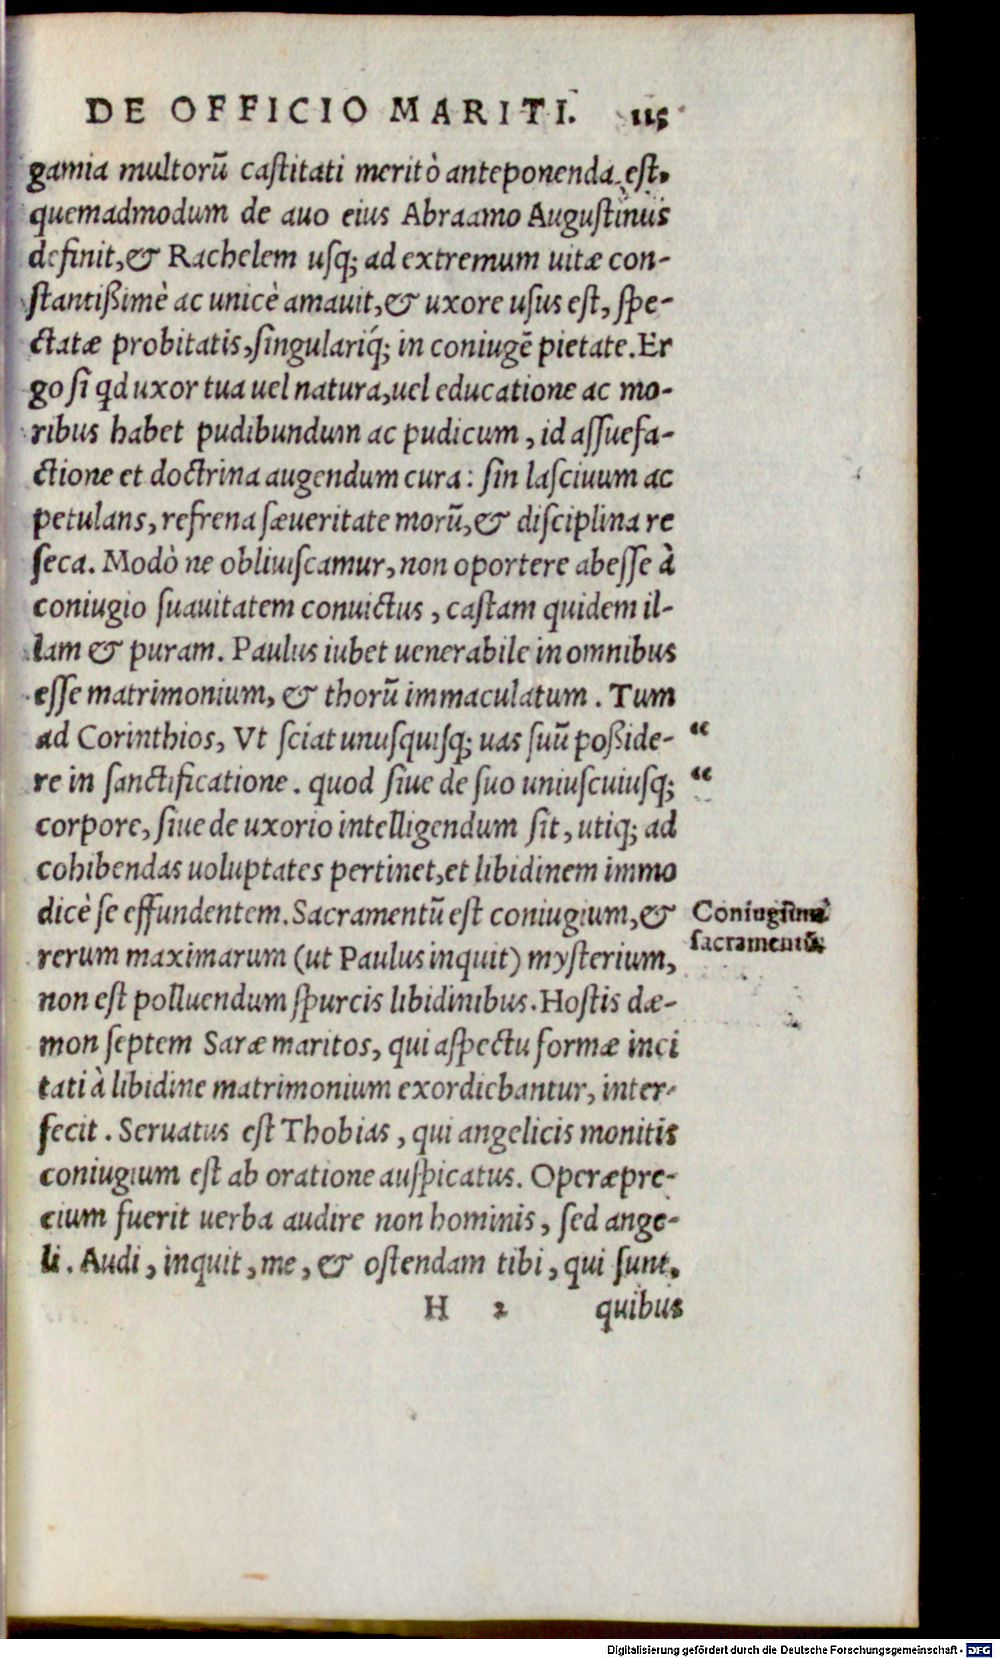 DE OFFICIO MARITI. 115
gamia multorũ castitati meritò anteponenda est,
quemadmodum de auo eius Abraamo Augustinus
definit, & Rachelem usq; ad extremum uitæ con-
stantißimè ac unicè amauit, & uxore usus est, spe-
ctatæ probitatis, singulariq́; in coniugẽ pietate. Er
go si qd uxor tua uel natura, uel educatione ac mo-
ribus habet pudibundum ac pudicum, id assuefa-
ctione et doctrina augendum cura: sin lasciuum ac
petulans, refrena sæueritate morũ, & disciplina re
seca. Modò ne obliuiscamur, non oportere abesse à
coniugio suauitatem conuictus, castam quidem il-
lam & puram. Paulus iubet uenerabile in omnibus
esse matrimonium, & thorũ immaculatum. Tum
ad Corinthios, Vt sciat unusquisq; uas suũ poßide- “
re in sanctificatione. quod siue de suo uniuscuiusq; “
corpore, siue de uxorio intelligendum sit, utiq; ad
cohibendas uoluptates pertinet, et libidinem immo
dicè se effundentem. Sacramentũ est coniugium, & Coniugiũ
rerum maximarum (ut Paulus inquit) mysterium, sacramentũ
non est polluendum spurcis libidinibus. Hostis dæ-
mon septem Saræ maritos, qui aspectu formæ inci
tati à libidine matrimonium exordiebantur, inter-
fecit. Seruatus est Thobias, qui angelicis monitis
coniugium est ab oratione auspicatus. Operæpre-
cium fuerit uerba audire non hominis, sed ange-
li. Audi, inquit, me, & ostendam tibi, qui sunt,
H 2 quibus
Digitalisierung gefördert durch die Deutsche Forschungsgemeinschaft - DFG